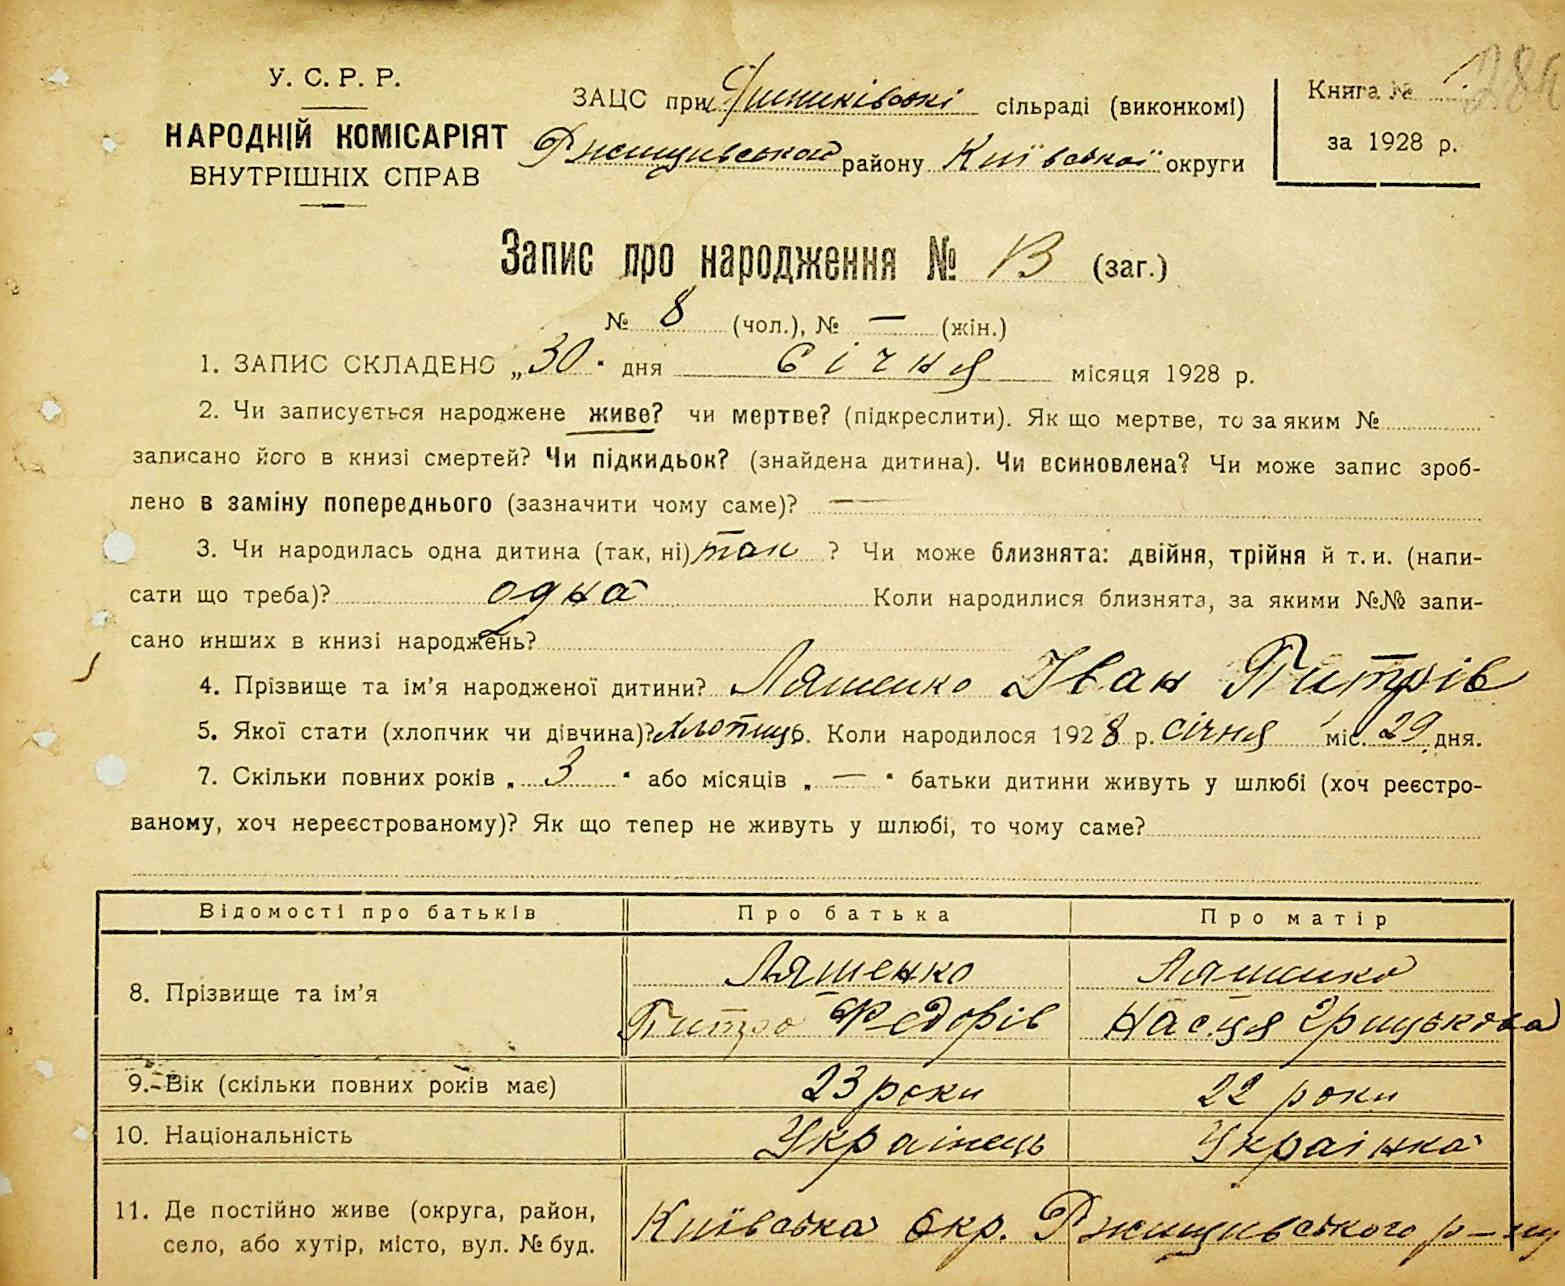 У. С. Р. Р.
НАРОДНІЙ КОМІСАРІЯТ
ВНУТРІШНІХ СПРАВ
ЗАЦС при сільраді (виконкомі)
Ржищивськой району Київської округи
Книга №
за 1928 р.
Запис про народження № 13 (заг.)
№ 8 (чол.), № — (жін.)
1. ЗАПИС СКЛАДЕНО „30" дня січня місяця 1928 р.
2. Чи записується народжене живе? чи мертве? (підкреслити). Як що мертве, то за яким №
записано його в книзі смертей? Чи підкидьок? (знайдена дитина). Чи всиновлена? Чи може запис зроб-
лено в заміну попереднього (зазначити чому саме)? —
3. Чи народилась одна дитина (так, ні) так ? Чи може близнята: двійня, трійня й т. и. (напи-
сати що треба)? одна Коли народилися близнята, за якими №№ запи-
сано инших в книзі народжень?
4. Прізвище та ім'я народженої дитини? Ляшенко Іван Питрів
5. Якої стати (хлопчик чи дівчина)? хлопиць. Коли народилося 1928 р. січня міс. 29 дня.
7. Скільки повних років „ 3 " або місяців „ — " батьки дитини живуть у шлюбі (хоч реєстро-
ваному, хоч нереєстрованому)? Як що тепер не живуть у шлюбі, то чому саме?
Відомості про батьків Про батька Про матір
8. Прізвище та ім'я Ляшенко Ляшенко
Питро Федорів Насця Грицькова
9. Вік (скільки повних років має) 23 роки 22 роки
10. Національність Українець Українка
11. Де постійно живе (округа, район, Київська окр. Ржищивського р-ну
село, або хутір, місто, вул. № буд.